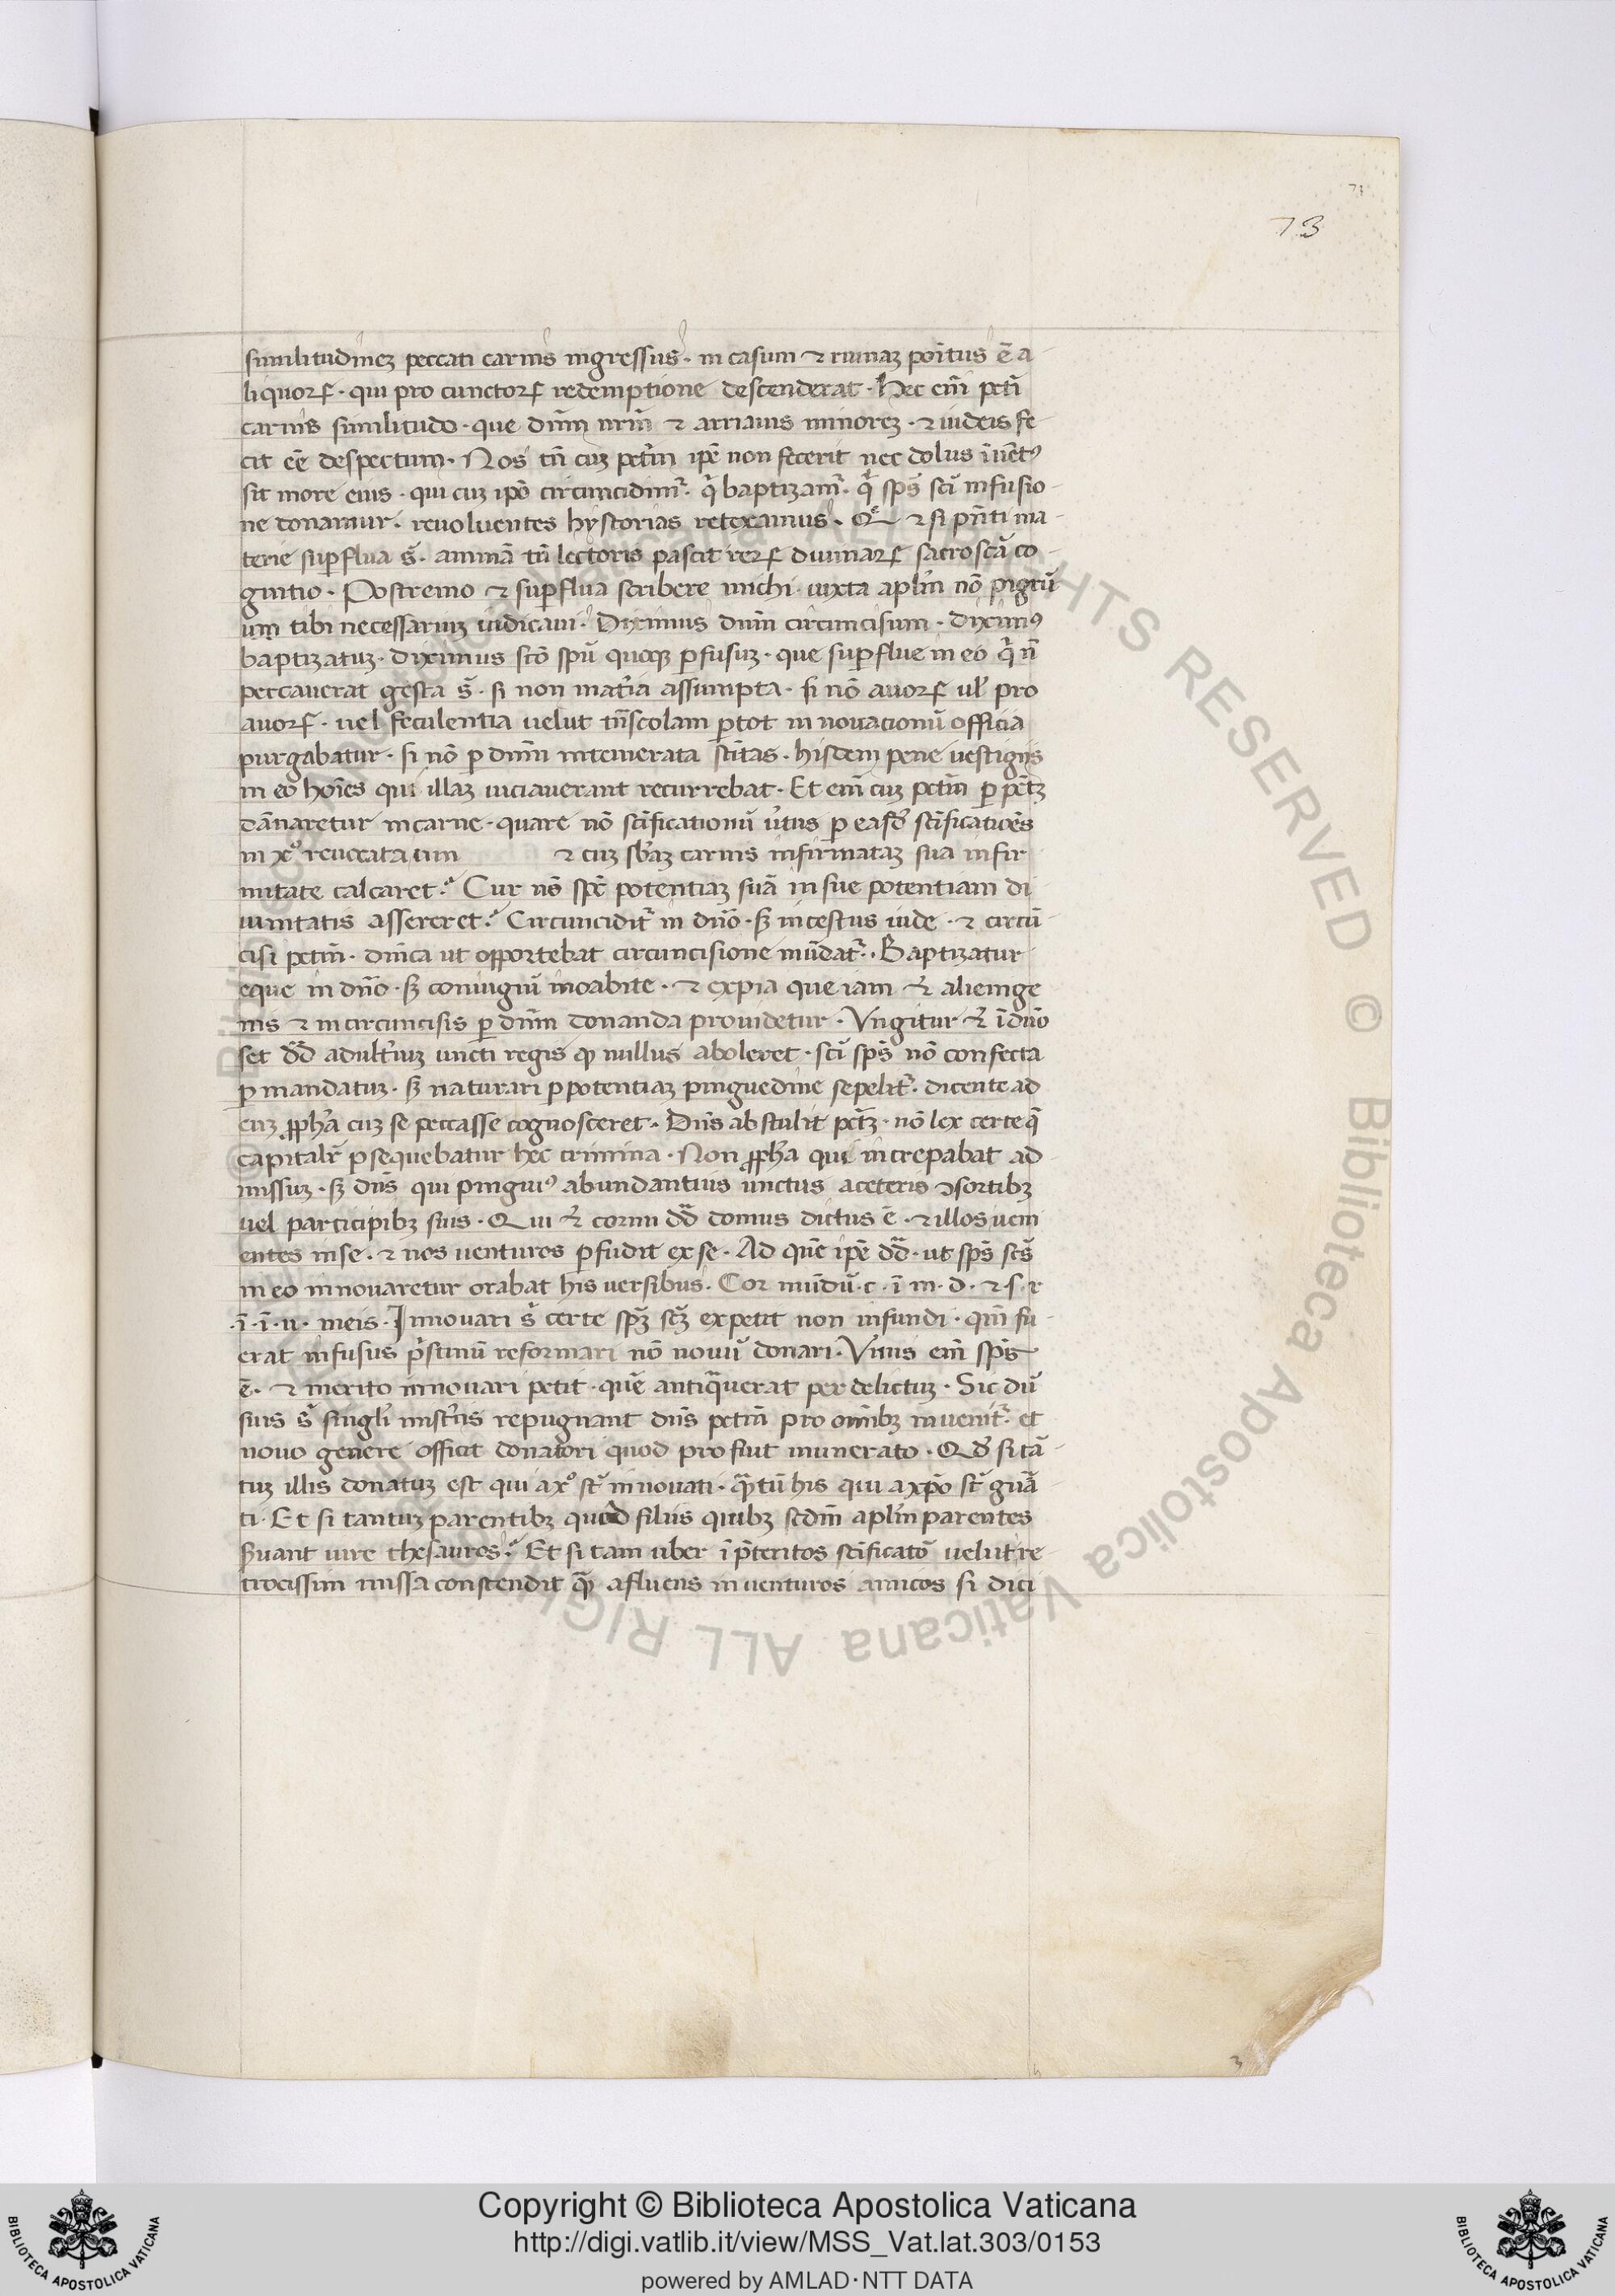 73
73
similitudineʒ peccati carnis ingressus · in casum ⁊ ruinaʒ poītus ē a-
liquoꝝ · qui pro cunctoꝝ redemptione descenderat · Hec em̄ pctī
carnis similitudo · que dn̄m nr̄m ⁊ arrianis minoreʒ · ⁊ iudeis fe-
cit eē despectum · Nos tn̄ cuʒ pctm̄ ip̄e non fecerit nec dolus īuētꝰ
sit more eius · qui cuʒ ip̄o circuncidimr̄ · baptizamr̄ · sp̄s sc̄i infusio-
ne donamur · reuoluentes hystorias retexamus · ⁊ si pn̄ti ma-
terie suꝑflua s̄ · animā tn̄ lectoris pascit reꝝ diuinaꝝ sacroscā co-
gnitio · Postremo ⁊ suꝑflua scribere michi iuxta apl̄m nō pigrū
um̄ tibi necessariuʒ iudicaui · Diximus dn̄m circuncisum · diximꝰ
baptizatuʒ · diximus scō spū quoqʒ ꝑfusuʒ · que suꝑflue in eo n̄
peccauerat gesta s̄ · si non mat̄ia assumpta · si nō auoꝝ ul̓ pro
auoꝝ · uel feculentia uelut tn̄scolam ꝑ tot in nouacionū officia
purgabatur · si nō ꝑ dn̄m intemerata sc̄itas · hisdem pene uestigijs
in eo hoīes qui illaʒ uiciauerant recurrebat · Et em̄ cuʒ pctm̄ ꝑ pctʒ
dānaretur in carne · quare nō sc̄ificationū ꝑ easdē sc̄ificatiōes
in xᵒ reuocata uim ⁊ cuʒ carnis infirmataʒ sua infir-
mitate calcaret · Cur nō sp̄c potentiaʒ suā in sue potentiam di-
uinitatis assereret · Circunciditr̄ in dn̄o · sʒ incestus iude · ⁊ circū
cisi pctm̄ · dn̄ica ut opportebat circuncisione mūdatr̄ · Baptizatur
eque in dn̄o · sʒ coniugiū moabite · ⁊ expia que iam alienige-
nis ⁊ in circuncisis ꝑ dn̄m donanda prouidetur · Vngitur ī dn̄o
set dd̄ adult̄iuʒ uncti regis nullus aboleret · sc̄i sp̄s nō confecta
ꝑ mandatuʒ · sʒ naturari ꝑ potentiaʒ pinguedine sepelitr̄ · dicente ad
euʒ ꝓph̄a cuʒ se peccasse cognosceret · Dn̄s abstulit pctʒ · nō lex certe
capitalr̄ ꝑsequebatur hec crimina · Non ꝓph̄a qui increpabat ad-
missuʒ · sʒ dn̄s qui pinguiꝰ abundantius unctus a ceteris ↄsortibʒ
uel participibʒ suis · Qui cornu dd̄ domus dictus ē · ⁊ illos ueni
entes in se · ⁊ nos venturos ꝑfudit ex se · Ad quē ip̄e dd̄ · ut sp̄s sc̄s
in eo innouaretur orabat his versibus · Cor mūdū · c · ī · m · d · ⁊ · s · r
· ī · ī · u · meis · Innouari s̄ certe sp̄ʒ sc̄ʒ expetit non infundi · qm̄ fu-
erat infusus p̄stinū reformari nō nouū donari · Vnus em̄ sp̄s
ē · ⁊ merito innouari petit · quē antiquauerat per delictuʒ · Sic dū
suis s̄ singl̓i mist̄iis repugnant dn̄s pctm̄ pro om̄ibʒ inuenitr̄ · et
nouo genere officit donatori quod profiut munerato · Qd̓ si tā-
tuʒ illis donatuʒ est qui a xᵒ st̄ innouati · tū his qui a xp̄o st̄
ti · Et si tantuʒ parentibʒ quid filiis quibʒ scdm̄ apl̄m parentes
s̄uant iure thesauros · Et si tam uber ī p̄teritos sc̄ificatō uelut re-
trocissim missa conscendit afluens in venturos amicos si dici
3
Copyright © Biblioteca Apostolica Vaticana
http://digi.vatlib.it/view/MSS_Vat.lat.303/0153
powered by AMLAD·NTT DATA
BIBLIOTECA APOSTOLICA VATICANA
BIBLIOTECA APOSTOLICA VATICANA
© Biblioteca Apostolica Vaticana ALL RIGHTS RESERVED © Biblioteca Apostolica Vaticana ALL RIGHTS RESERVED